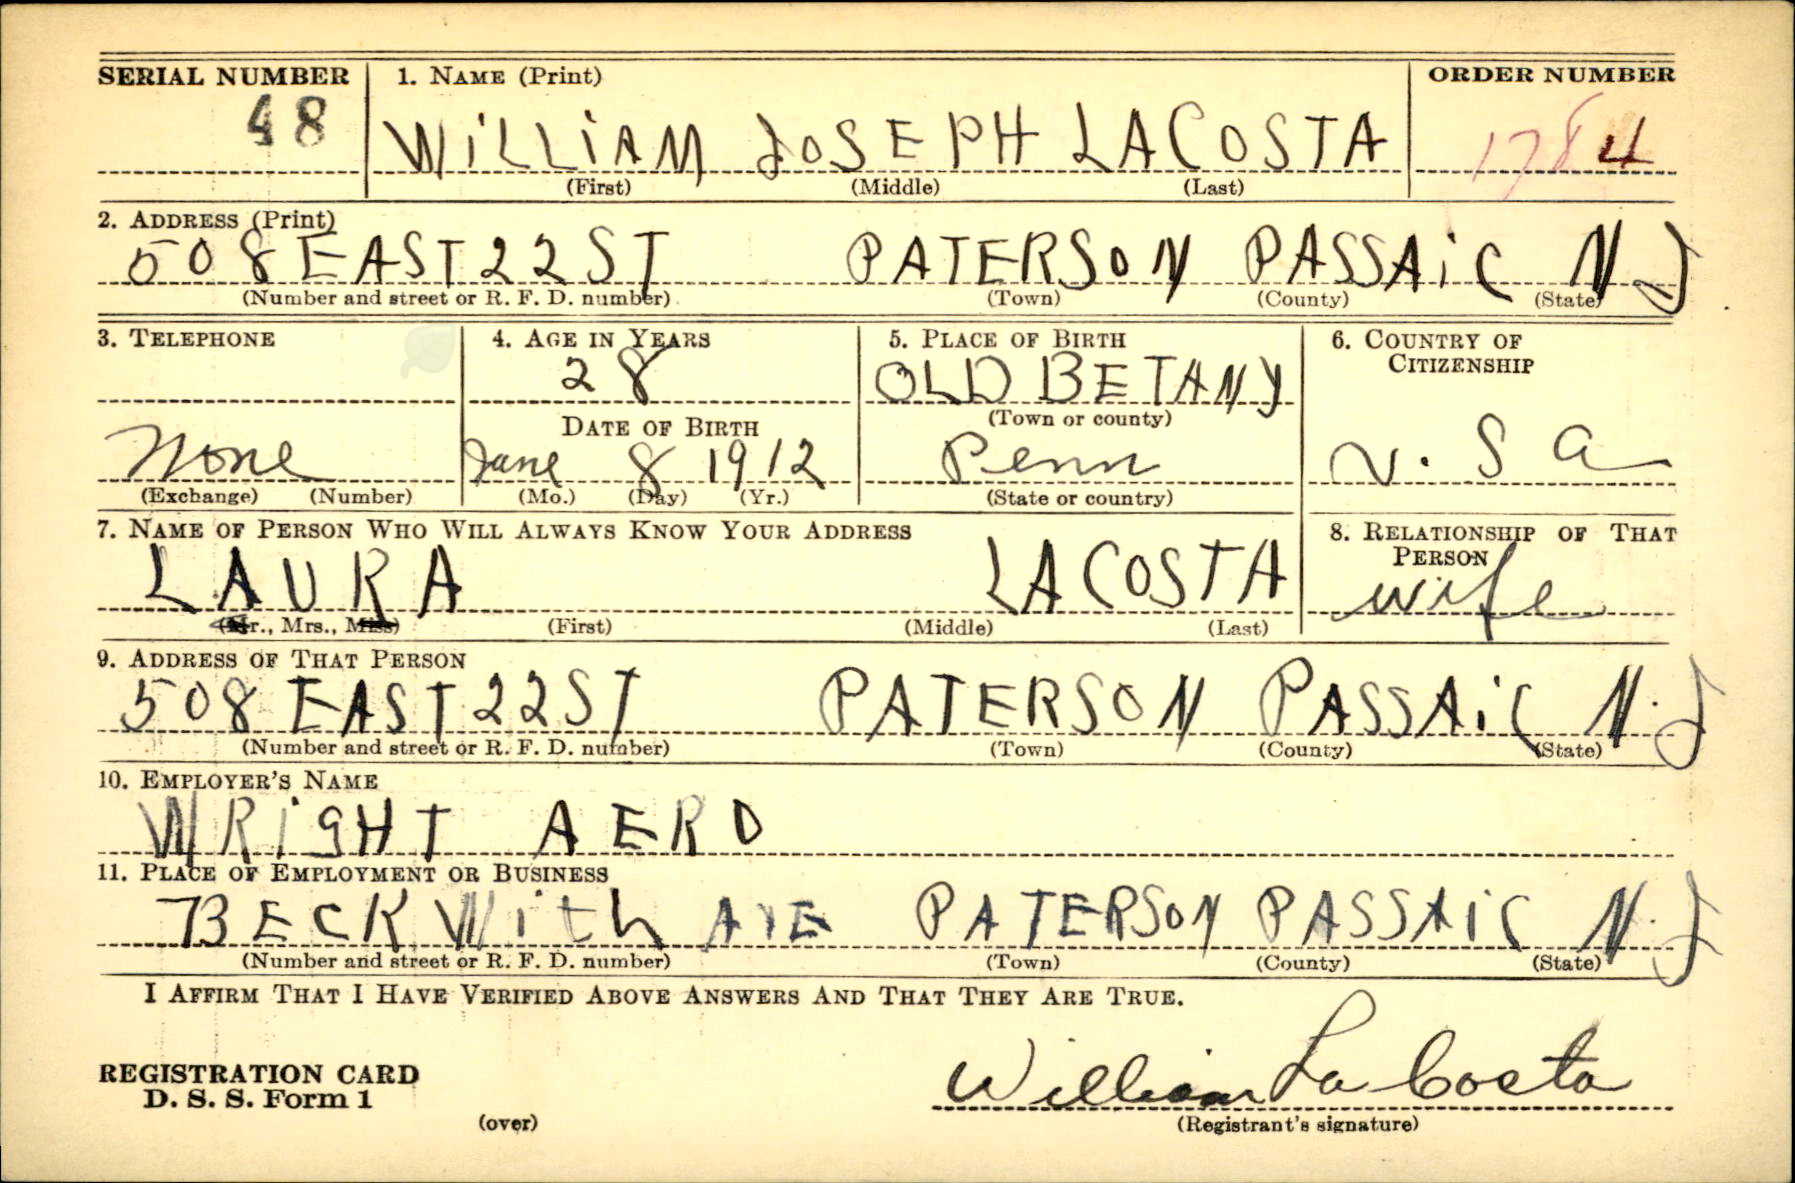 SERIAL NUMBER 1. NAME (Print) ORDER NUMBER
48 WiLLiAM JOSEPH LACOSTA 1784
(First) (Middle) (Last)
2. ADDRESS (Print)
508 EAST 22 ST PATERSON PASSAiC N J
(Number and street or R. F. D. number) (Town) (County) (State)
3. TELEPHONE 4. AGE IN YEARS 5. PLACE OF BIRTH 6. COUNTRY OF CITIZENSHIP
28 OLD BETANY
DATE OF BIRTH (Town or county)
None June 8 1912 Penn U. S a
(Exchange) (Number) (Mo.) (Day) (Yr.) (State or country)
7. NAME OF PERSON WHO WILL ALWAYS KNOW YOUR ADDRESS 8. RELATIONSHIP OF THAT PERSON
LAURA LACOSTA wife
(Mr., Mrs., Miss) (First) (Middle) (Last)
9. ADDRESS OF THAT PERSON
508 EAST 22 ST PATERSON PASSAiC N. J
(Number and street or R. F. D. number) (Town) (County) (State)
10. EMPLOYER'S NAME
WRiGHT AERO
11. PLACE OF EMPLOYMENT OR BUSINESS
BECKWith AVE PATERSON PASSAiC N. J
(Number and street or R. F. D. number) (Town) (County) (State)
I AFFIRM THAT I HAVE VERIFIED ABOVE ANSWERS AND THAT THEY ARE TRUE.
REGISTRATION CARD
D. S. S. Form 1 William La Costa
(over) (Registrant's signature)